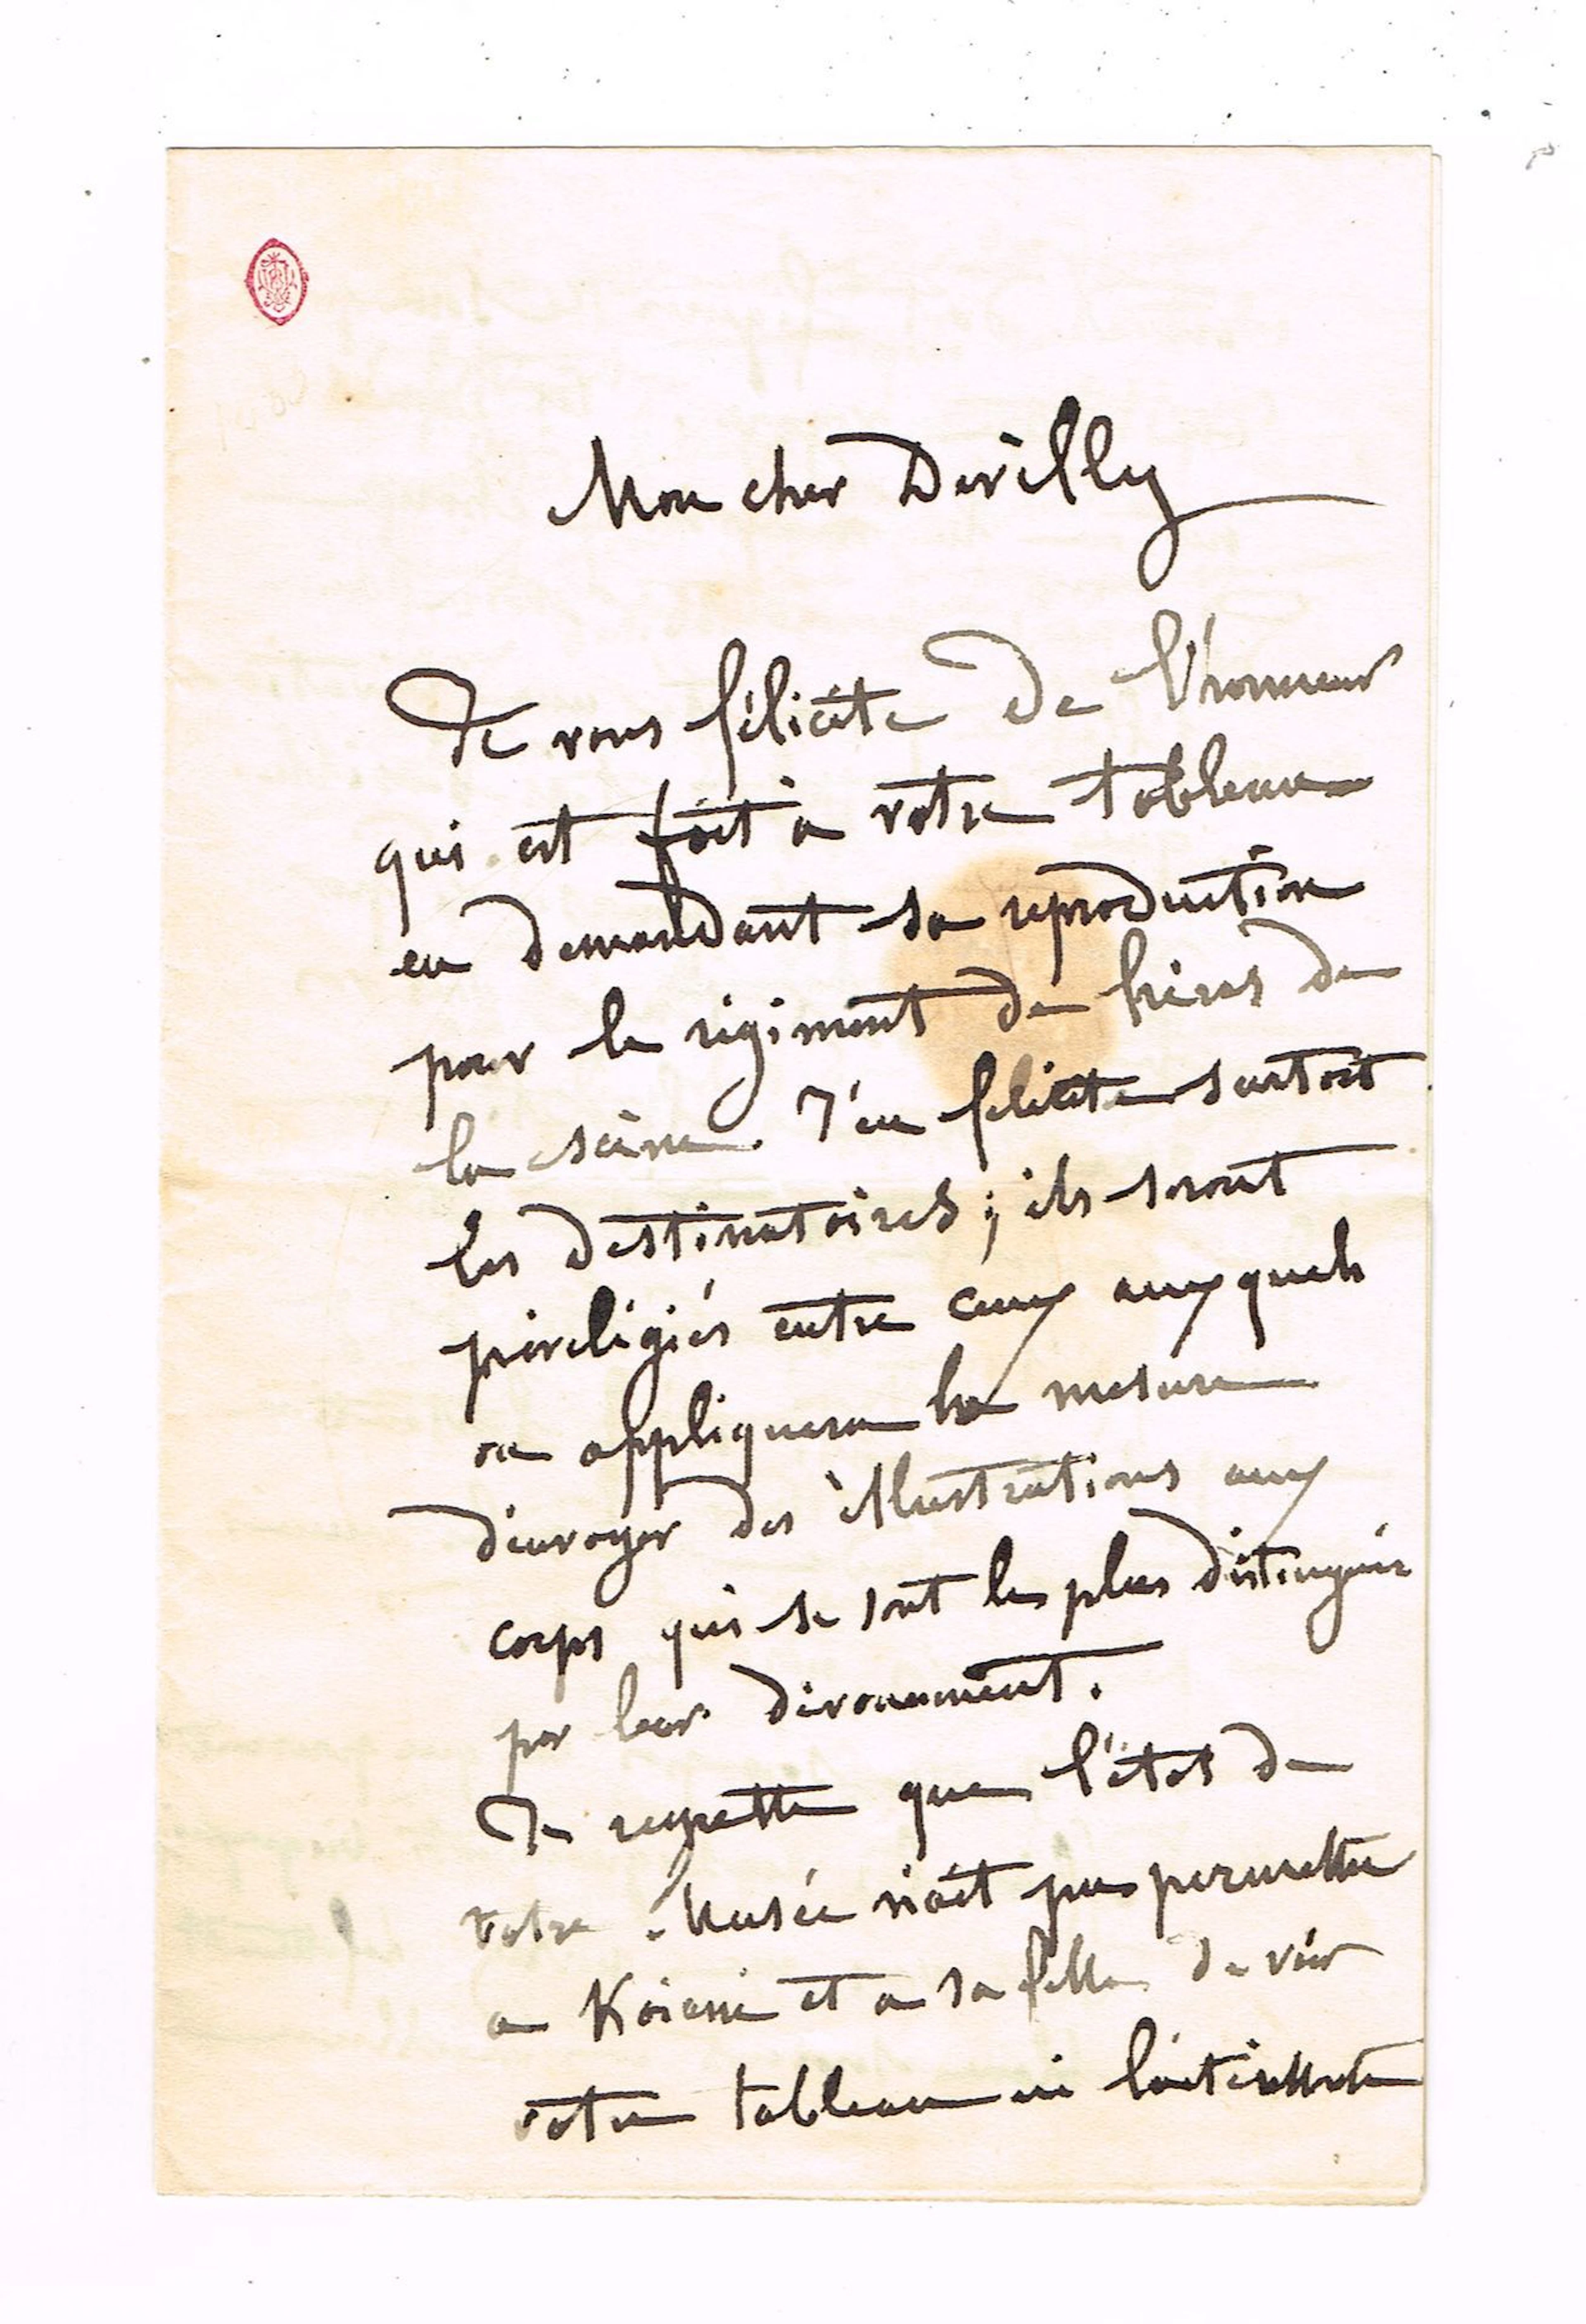 Mon cher Devilly
Je vous félicite de l'honneur
qui est fait à votre tableau
en demandant sa reproduction
pour le régiment de
la J'en félicite surtout
les destinatoires; ils seront
privéligiés entre ceux auxquels
on appliquera la mesure
d'envoyer des illustrations aux
corps qui se sont le plus distingués
par leur dévouement.
Je regrette que l'état de
votre Musée n'ait pu permettre
a et a sa fille de voir
votre tableau ni